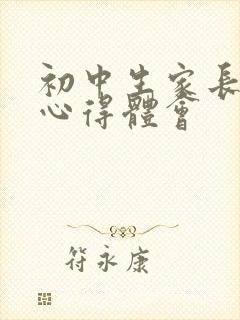 初中生家長
心得體會
符永康